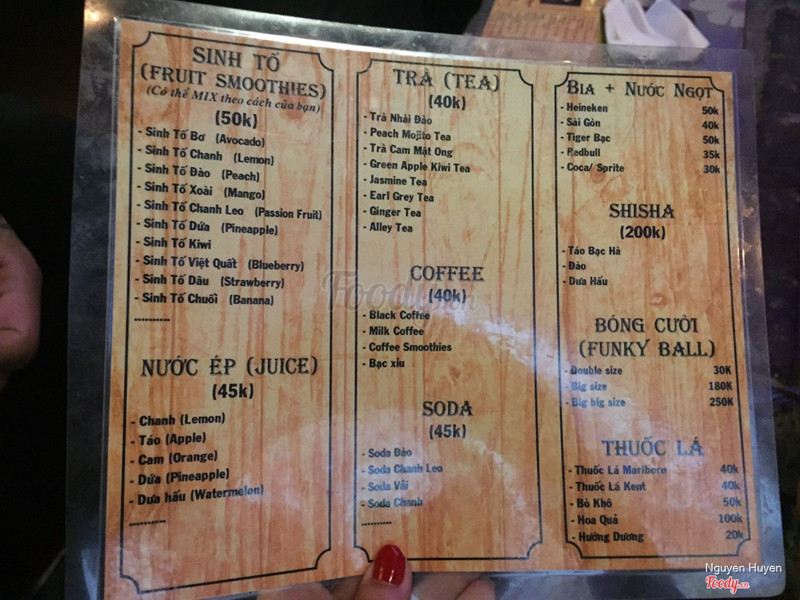 SINH TỐ
(FRUIT SMOOTHIES)
(Có thể MIX theo cách của bạn)
(50k)
- Sinh Tố Bơ (Avocado)
- Sinh Tố Chanh (Lemon)
- Sinh Tố Đào (Peach)
- Sinh Tố Xoài (Mango)
- Sinh Tố Chanh Leo (Passion Fruit)
- Sinh Tố Dứa (Pineapple)
- Sinh Tố Kiwi
- Sinh Tố Việt Quất (Blueberry)
- Sinh Tố Dâu (Strawberry)
- Sinh Tố Chuối (Banana)
..........
NƯỚC ÉP (JUICE)
(45k)
- Chanh (Lemon)
- Táo (Apple)
- Cam (Orange)
- Dứa (Pineapple)
- Dưa hấu (Watermelon)
..........
TRÀ (TEA)
(40k)
- Trà Nhài Đào
- Peach Mojito Tea
- Trà Cam Mật Ong
- Green Apple Kiwi Tea
- Jasmine Tea
- Earl Grey Tea
- Ginger Tea
- Alley Tea
COFFEE
(40k)
- Black Coffee
- Milk Coffee
- Coffee Smoothies
- Bạc xỉu
SODA
(45k)
- Soda Đào
- Soda Chanh Leo
- Soda Vải
- Soda Chanh
..........
BIA + NƯỚC NGỌT
- Heineken 50k
- Sài Gòn 40k
- Tiger Bạc 50k
- Redbull 35k
- Coca/ Sprite 30k
SHISHA
(200k)
- Táo Bạc Hà
- Đào
- Dưa Hấu
BÓNG CƯỜI
(FUNKY BALL)
- Double size 30K
- Big size 180K
- Big big size 250K
THUỐC LÁ
- Thuốc Lá Marlboro 40k
- Thuốc Lá Kent 40k
- Bò Khô 50k
- Hoa Quả 100k
- Hướng Dương 20k
Foody.vn
Nguyen Huyen
Foody.vn